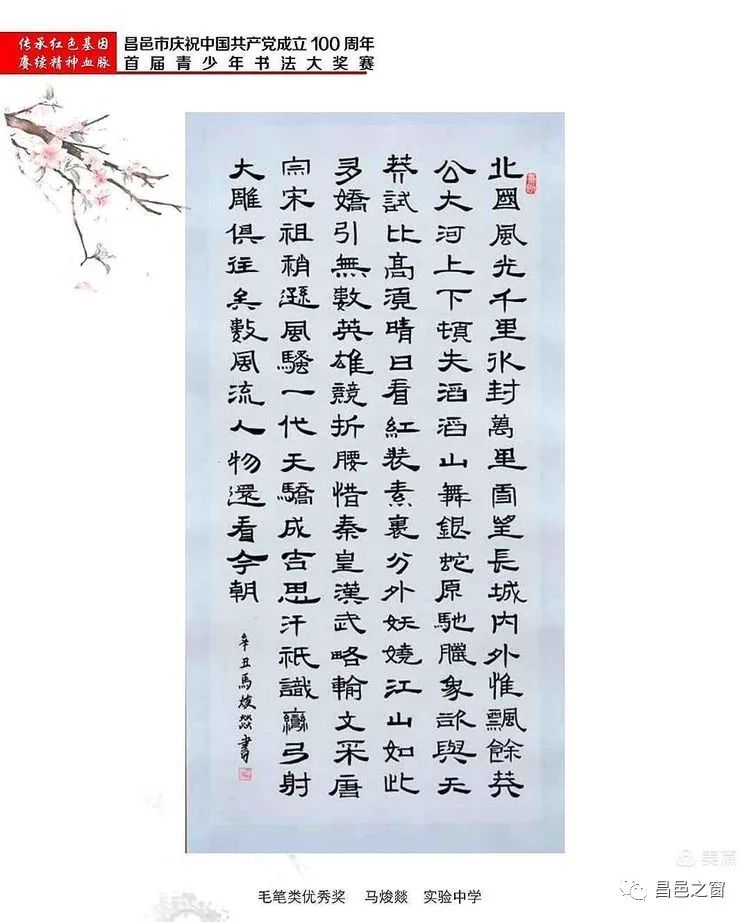 传承红色基因
赓续精神血脉
昌邑市庆祝中国共产党成立100周年
首届青少年书法大奖赛
北國風光千里氷封萬里雪望長城內外惟飄餘莽
公大河上下頓失滔滔山舞銀蛇原馳臘象欲與天
莽試比高須晴日看紅裝素裹分外妖嬈江山如此
多嬌引無數英雄競折腰惜秦皇漢武略輸文采唐
宗宋祖稍遜風騷一代天驕成吉思汗祇識彎弓射
大雕俱往矣數風流人物還看今朝
辛丑馬焌燚書
毛笔类优秀奖 马焌燚 实验中学
美篇
昌邑之窗